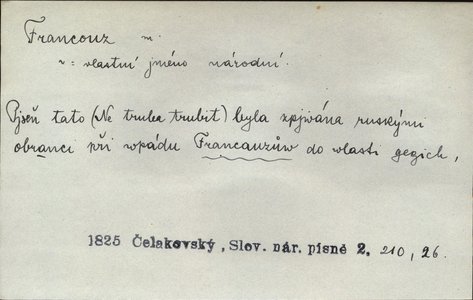 Francouz m.
v: vlastní jméno národní.
Pjseň tato (Ne truba trubit) byla zpjwána ruskými
obranci při wpádu Francauzůw do wlasti gegich,
1825 Čelakovský, Slov. nár. písně 2, 210, 26.